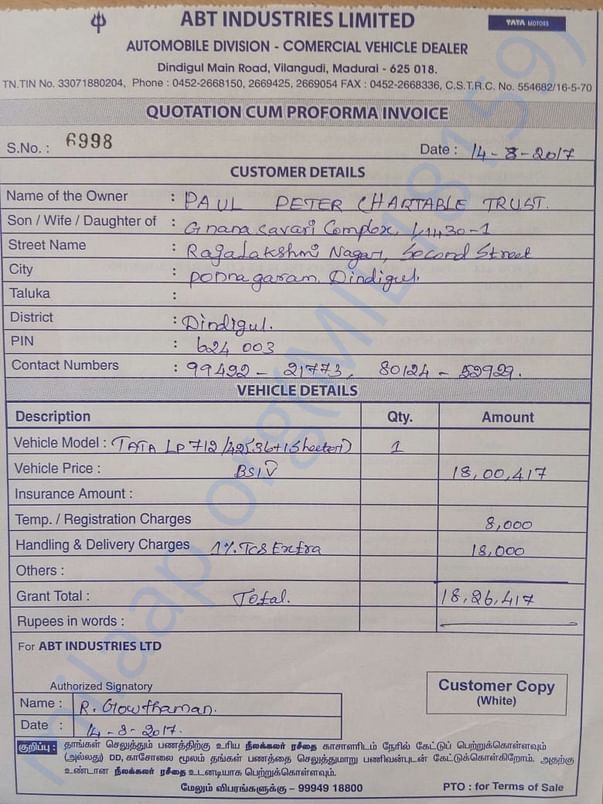 ABT INDUSTRIES LIMITED
TATA MOTORS
AUTOMOBILE DIVISION - COMERCIAL VEHICLE DEALER
Dindigul Main Road, Vilangudi, Madurai - 625 018.
TN.TIN No. 33071880204, Phone : 0452-2668150, 2669425, 2669054 FAX : 0452-2668336, C.S.T.R.C. No. 554682/16-5-70
QUOTATION CUM PROFORMA INVOICE
S.No. : 6998 Date : 14-8-2017
CUSTOMER DETAILS
Name of the Owner : PAUL PETER CHARTABLE TRUST.
Son / Wife / Daughter of : Gnana Savari Complex, 4/1430-1
Street Name : Rajalakshmi Nagar, Second Street
City : Ponnagaram, Dindigul.
Taluka :
District : Dindigul.
PIN : 624 003
Contact Numbers : 99492 - 21773, 80124 - 52929.
VEHICLE DETAILS
Description Qty. Amount
Vehicle Model : TATA LP 712/42 (36+1 Sheeter) 1
Vehicle Price : BSIV 18,00,417
Insurance Amount :
Temp. / Registration Charges 8,000
Handling & Delivery Charges 1% TCS Extra 18,000
Others :
Grant Total : Total. 18,26,417
Rupees in words :
For ABT INDUSTRIES LTD
Authorized Signatory
Customer Copy
(White)
Name : R. Gowthaman.
Date : 14-8-2017.
குறிப்பு : தாங்கள் செலுத்தும் பணத்திற்கு உரிய நீலக்கலர் ரசீதை காசாளரிடம் நேரில் கேட்டுப் பெற்றுக்கொள்ளவும்
(அல்லது) DD, காசோலை மூலம் தங்கள் பணத்தை செலுத்துமாறு பணிவன்புடன் கேட்டுக்கொள்கிறோம். அதற்கு
உண்டான நீலக்கலர் ரசீதை உடனடியாக பெற்றுக்கொள்ளவும்.
மேலும் விபரங்களுக்கு - 99949 18800 PTO : for Terms of Sale